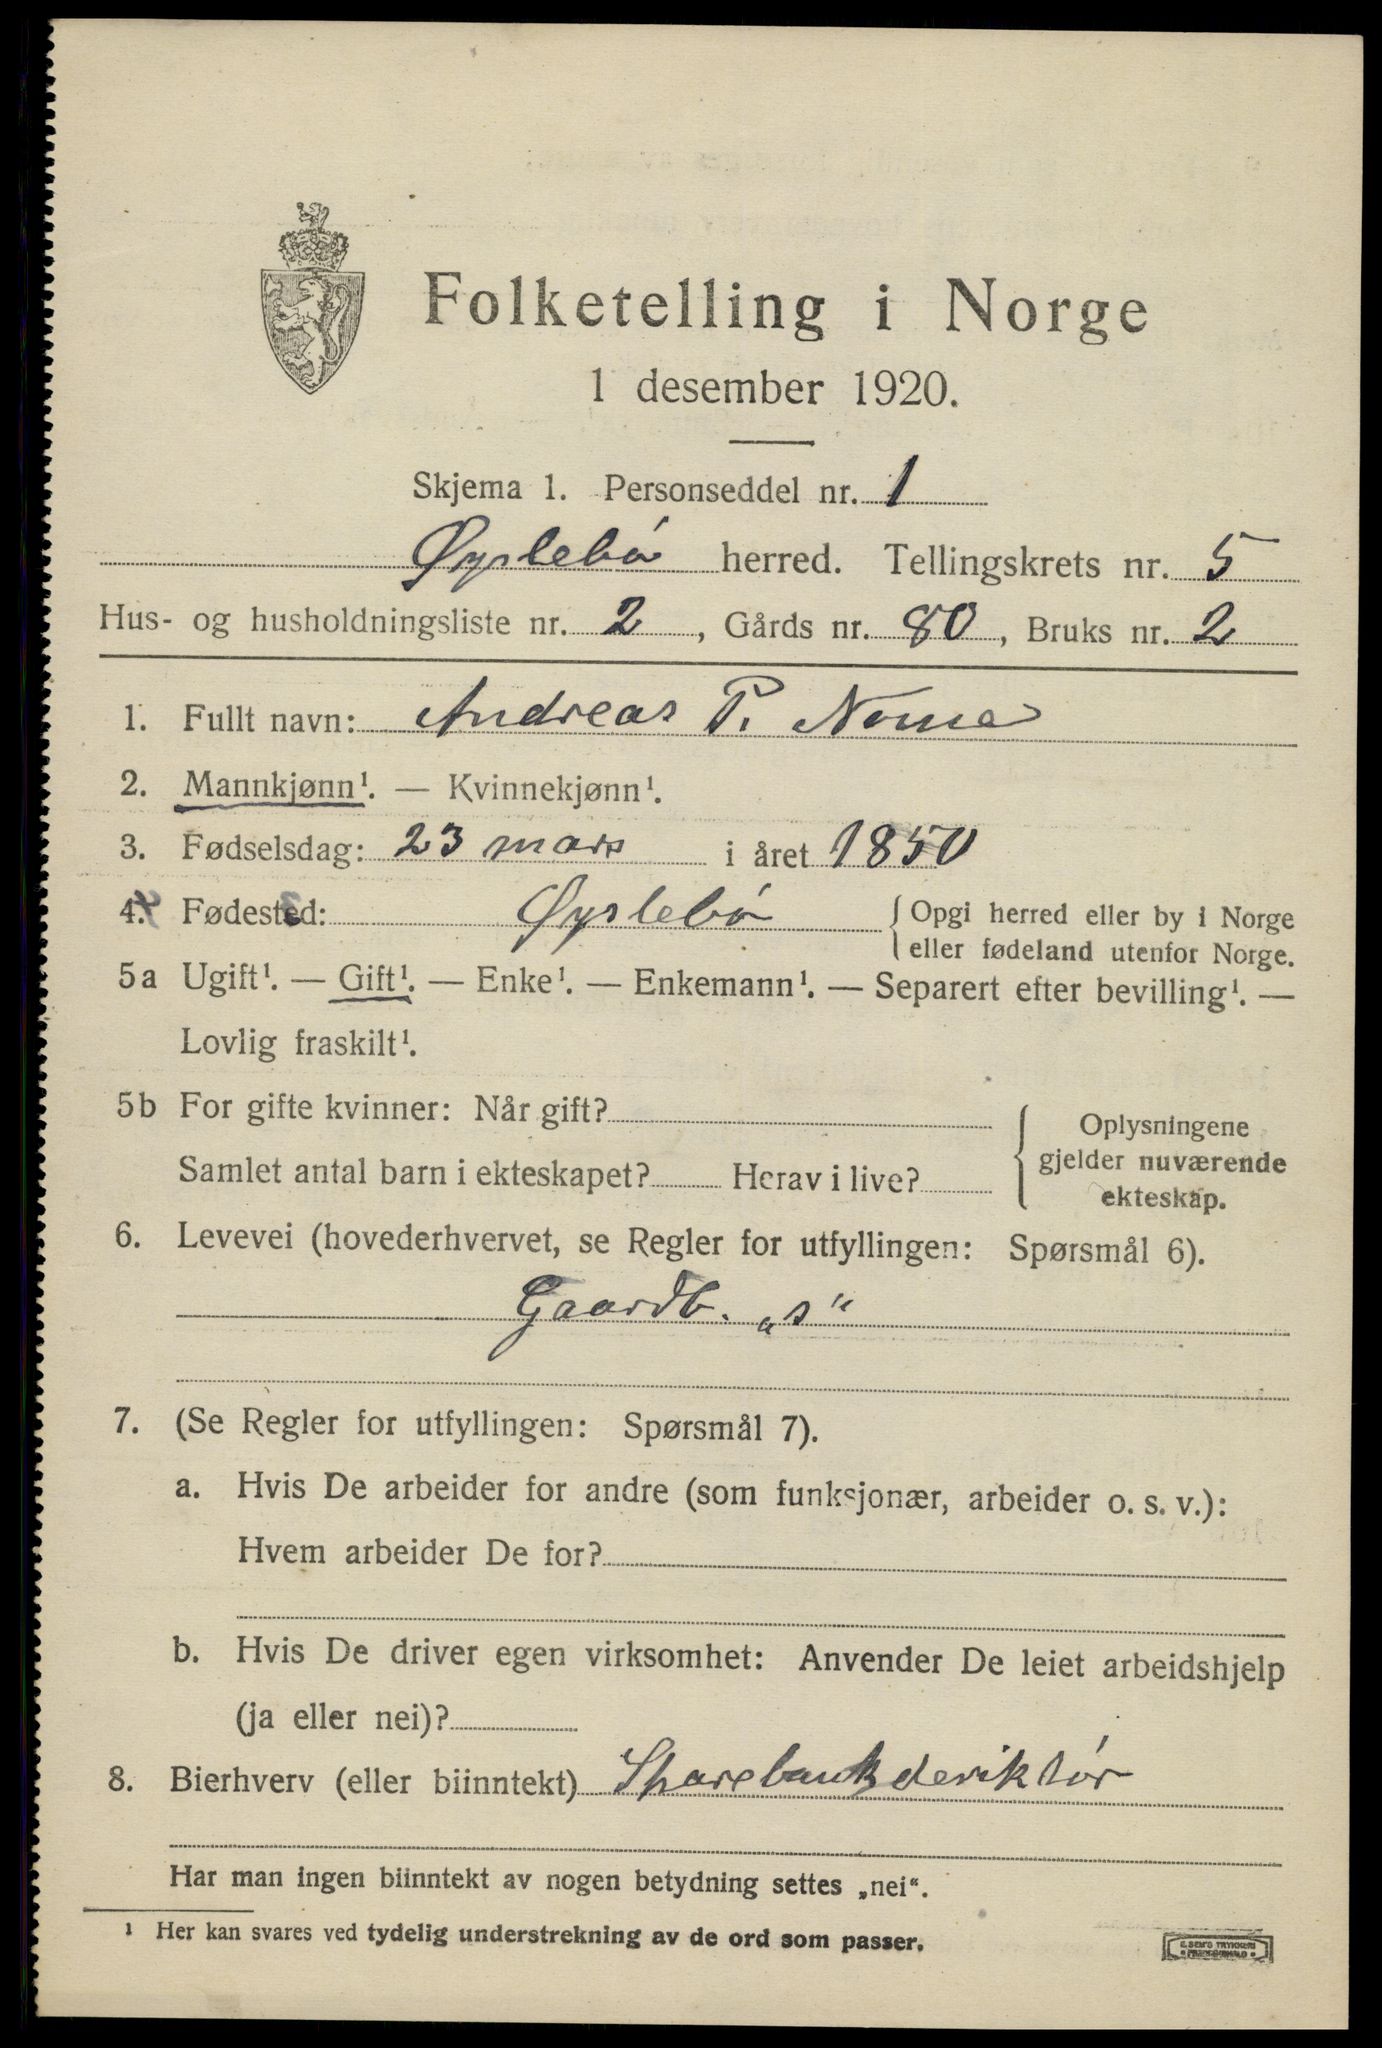 Folketelling i Norge
1 desember 1920.
Skjema 1. Personseddel nr. 1
Øyslebö herred. Tellingskrets nr. 5
Hus- og husholdningsliste nr. 2, Gårds nr. 80, Bruks nr. 2
1. Fullt navn: Andreas P. Nome
2. Mannkjønn¹. — Kvinnekjønn¹.
3. Fødselsdag: 23 mars i året 1850
4. Fødested: Øyslebö {Opgi herred eller by i Norge
eller fødeland utenfor Norge.
5a Ugift¹. — Gift¹. — Enke¹. — Enkemann¹. — Separert efter bevilling¹. —
Lovlig fraskilt¹.
5b For gifte kvinner: Når gift?
Samlet antal barn i ekteskapet? Herav i live?
{Oplysningene
gjelder nuværende
ekteskap.
6. Levevei (hovederhvervet, se Regler for utfyllingen: Spørsmål 6).
Gaardb. „s"
7. (Se Regler for utfyllingen: Spørsmål 7).
a. Hvis De arbeider for andre (som funksjonær, arbeider o. s. v.):
Hvem arbeider De for?
b. Hvis De driver egen virksomhet: Anvender De leiet arbeidshjelp
(ja eller nei)?
8. Bierhverv (eller biinntekt) Sparebankderiktör
Har man ingen biinntekt av nogen betydning settes „nei".
¹ Her kan svares ved tydelig understrekning av de ord som passer.
E. SEM'S TRYKKERI
• FREDRIKSHALD •